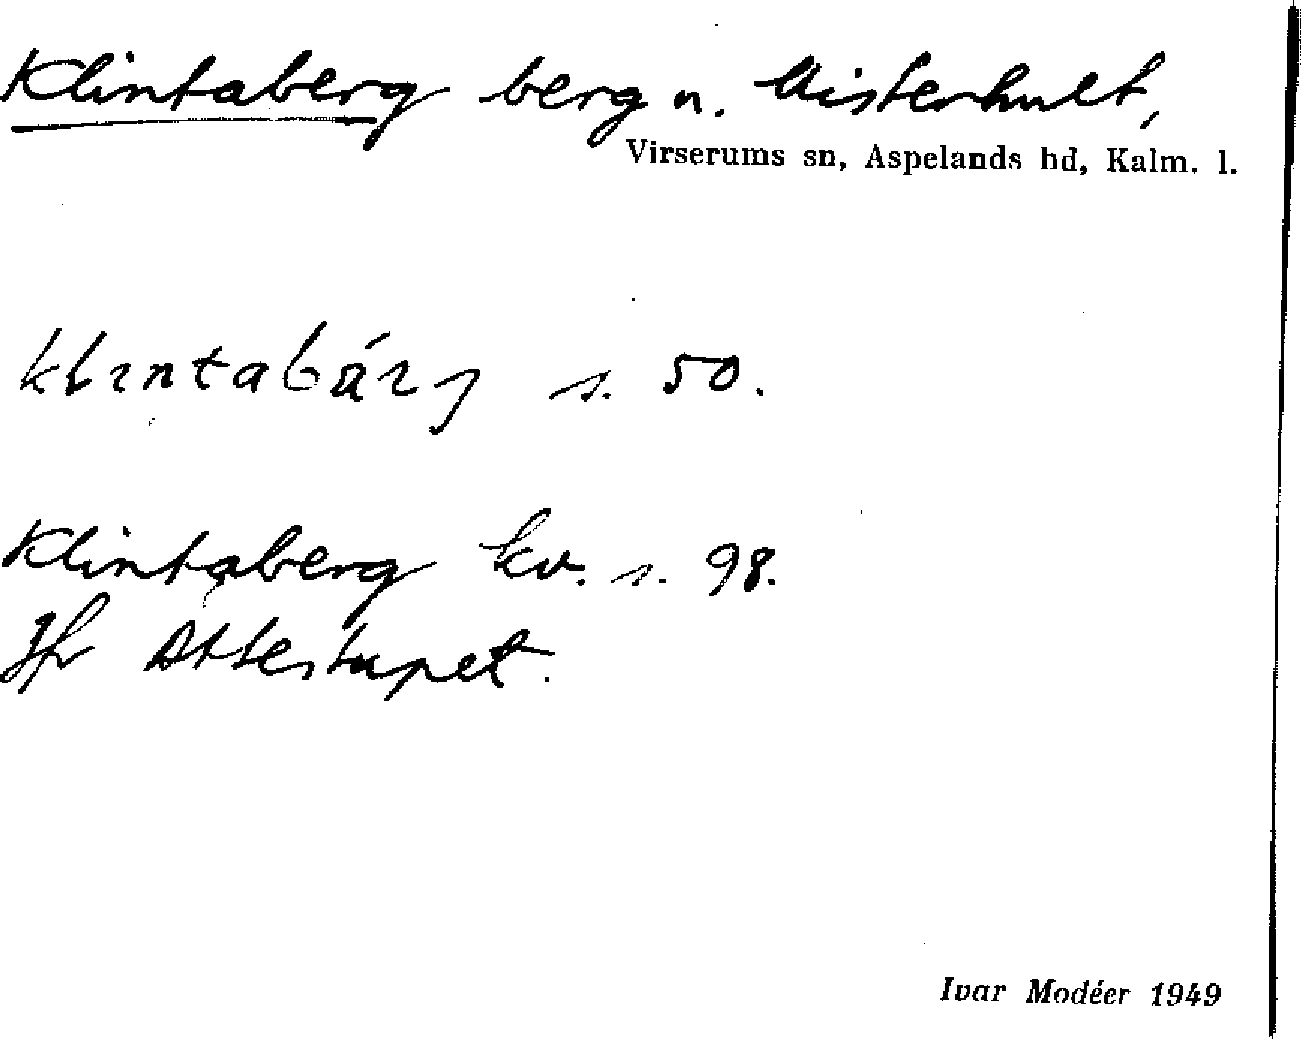 Klintaberg berg n. Misterhult,
Virserums sn, Aspelands hd, Kalm. l.
s. 50.
Klintaberg kv. s. 98.
Jfr Ättestupet.
Ivar Modéer 1949